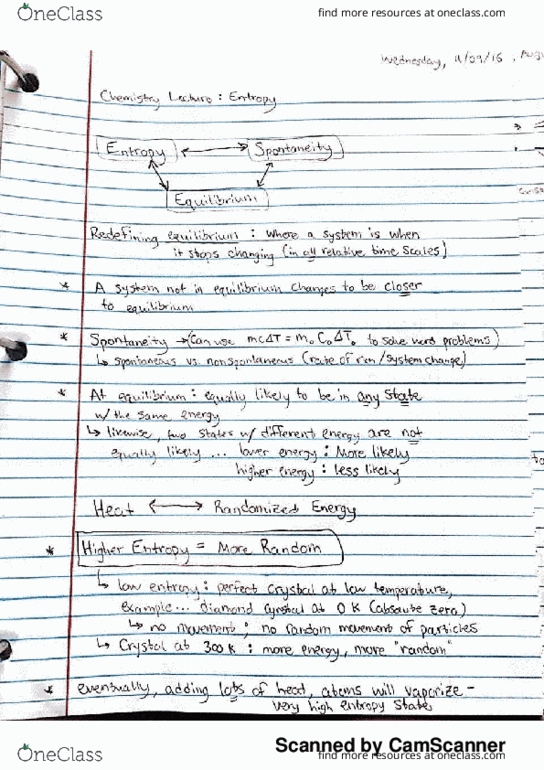 OneClass
find more resources at oneclass.com
Wednesday, 11/09/16, Aug
Chemistry Lecture : Entropy
Entropy ⟷ Spontaneity
Equilibrium
Redefining equilibrium : where a system is when
it stops changing (in all relative time scales)
* A system not in equilibrium changes to be closer
to equilibrium
* Spontaneity → (Can use mC∆T = m₀C₀∆T₀ to solve word problems)
↳ spontaneous vs. nonspontaneous (rate of rxn/system change)
* At equilibrium : equally likely to be in any state
w/ the same energy
↳ likewise, two states w/ different energy are not
equally likely ... lower energy : More likely
higher energy : less likely
Heat ⟷ Randomized Energy
* Higher Entropy = More Random
↳ low entropy : perfect crystal at low temperature,
example... diamond crystal at 0 K (absolute zero)
↳ no movement ; no random movement of particles
↳ Crystal at 300 K : more energy, more "random"
* eventually, adding lots of heat, atoms will vaporize -
very high entropy state
Scanned by CamScanner
OneClass
find more resources at oneclass.com